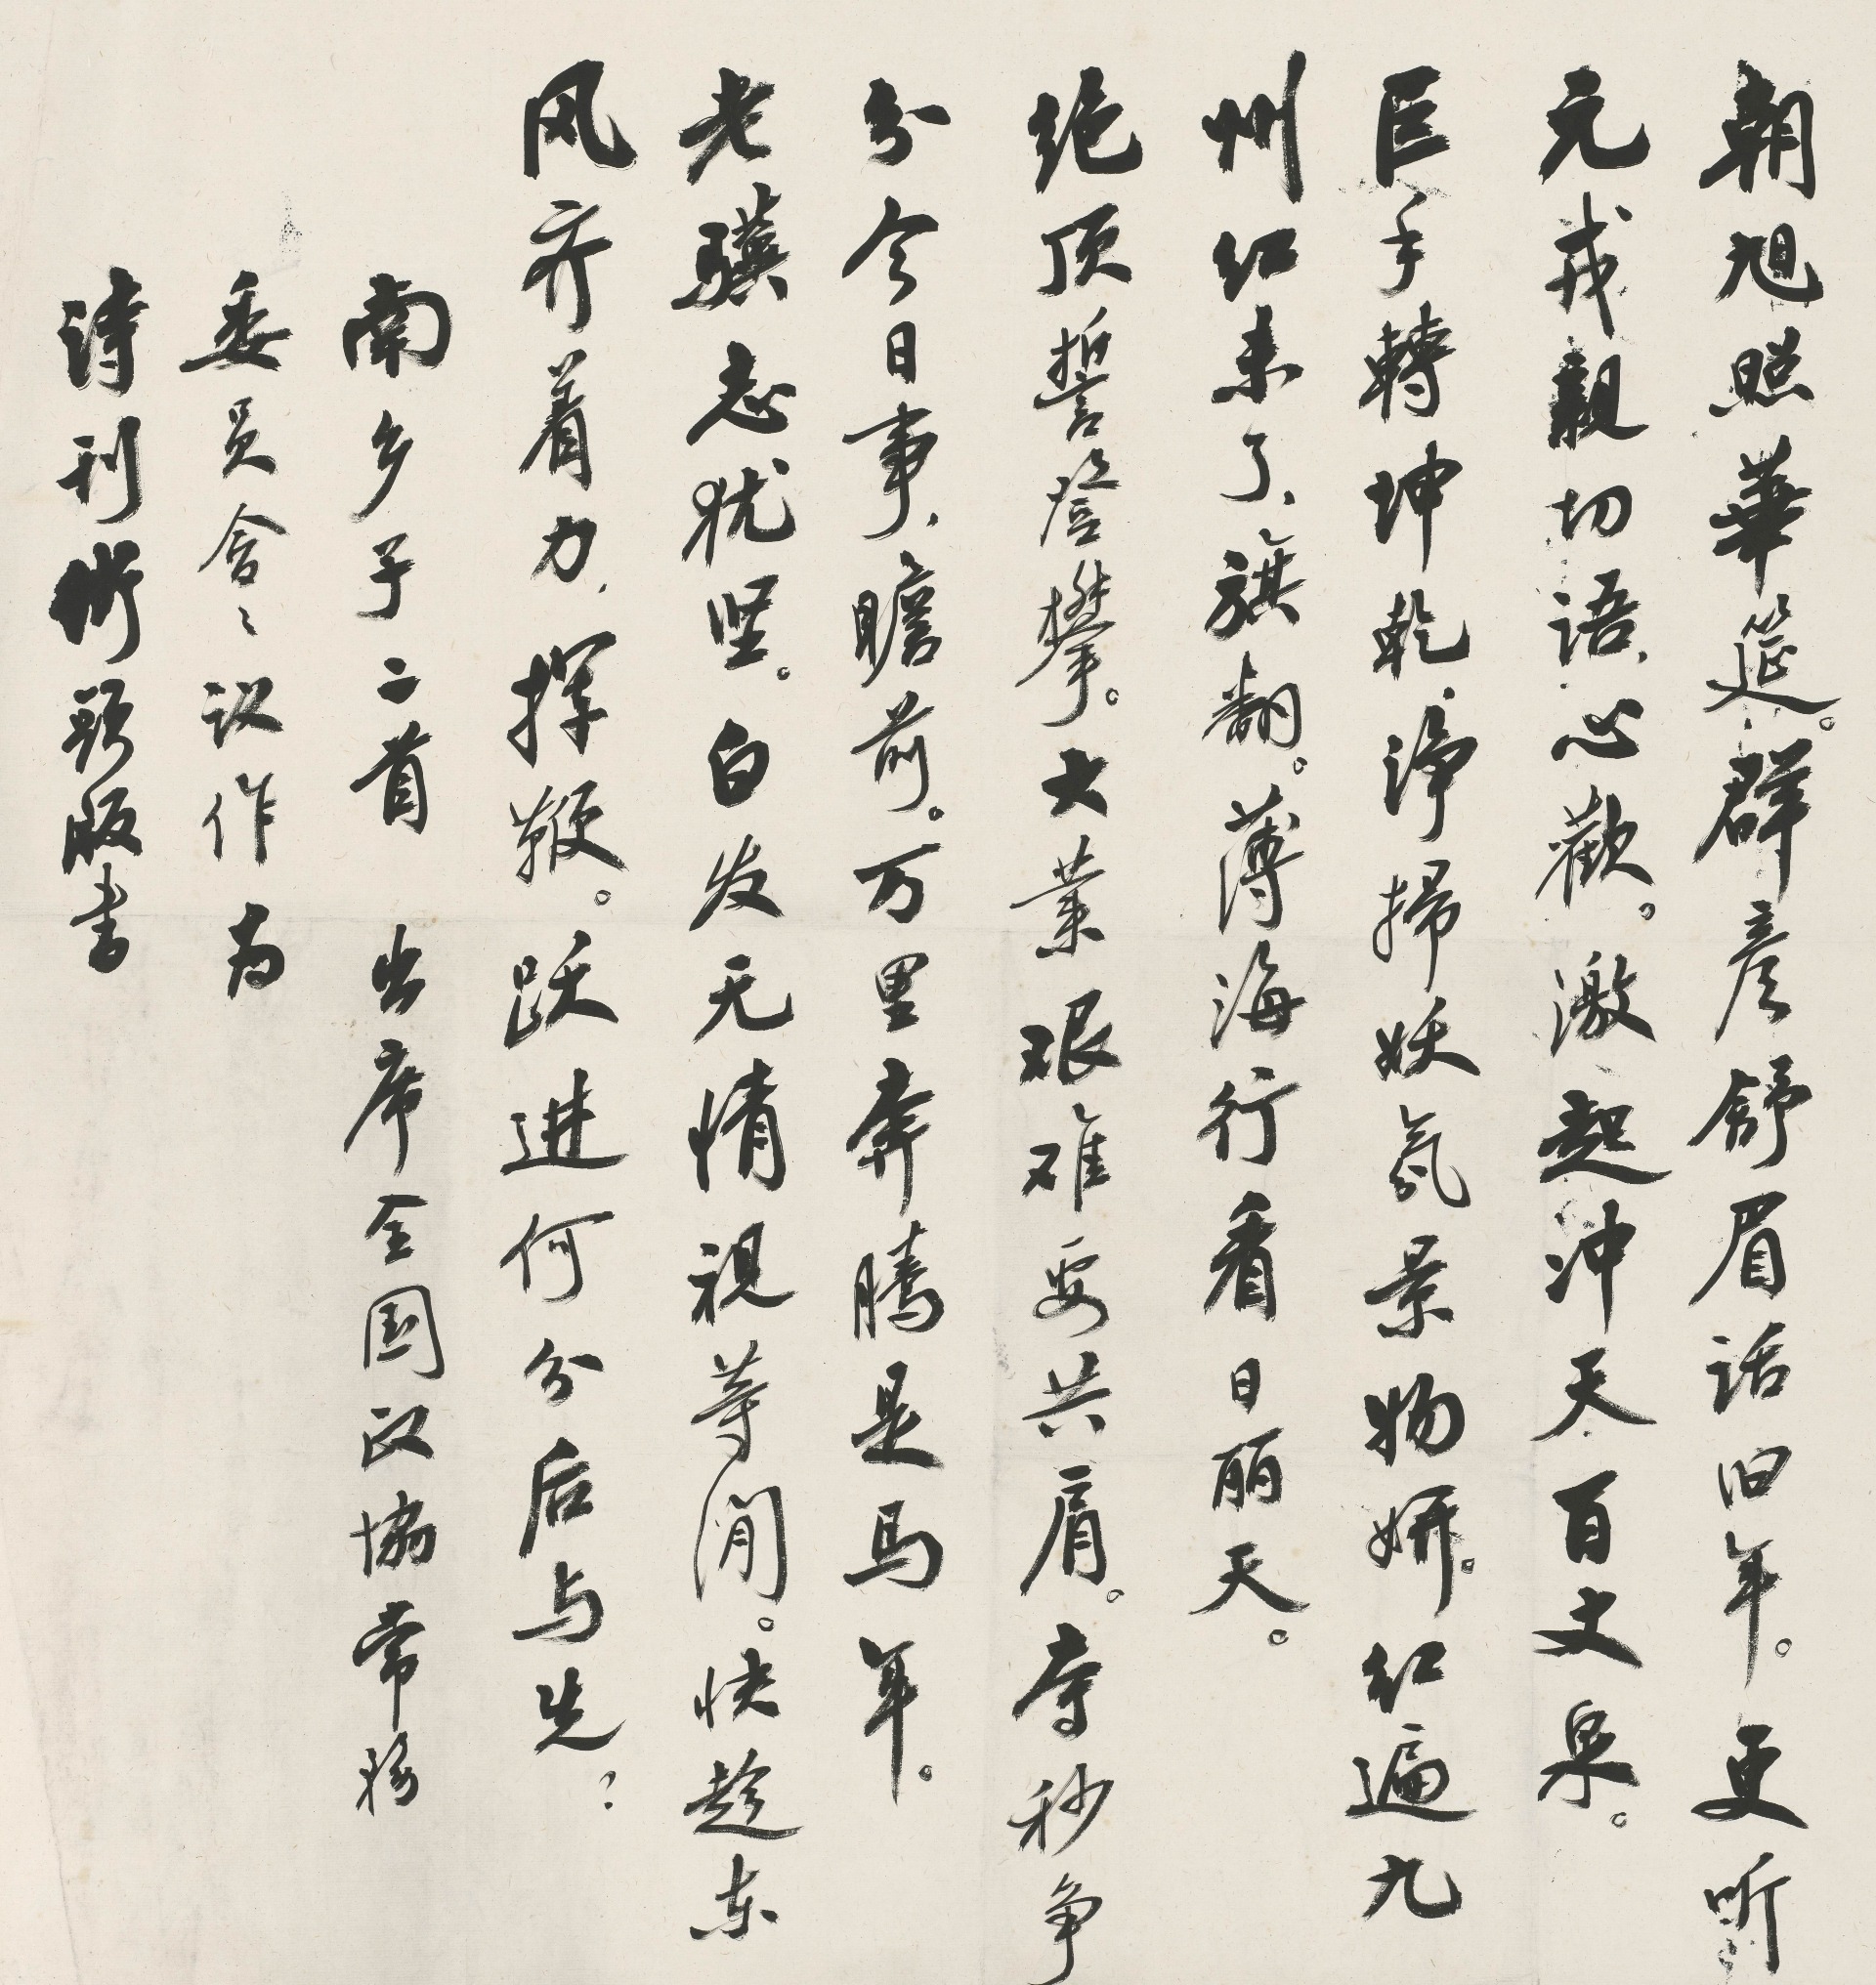 朝旭照華筵。群彦舒眉话旧年。更听
元戎親切语，心歡。激起冲天百丈泉。
巨手轉坤乾，净掃妖氛景物妍。红遍九
州红未了，旗翻。薄海行看日丽天。
绝顶誓登攀。大業艰难要共肩。夺秒争
分今日事，瞻前。万里奔腾是马年。
老骥志犹坚。白发无情视等闲。快趁东
风齐着力，挥鞭。跃进何分后与先！
南乡子二首 出席全国政協常務
委员会会议作为
诗刊街頭版书